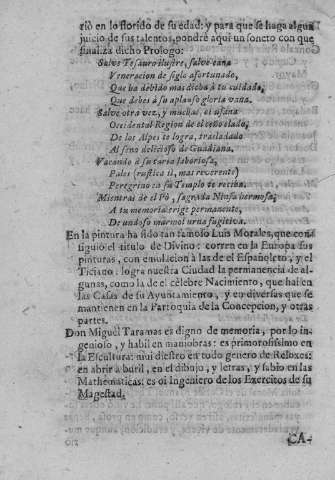 riò en lo florido de su edad: y para que se haga algun
juicio de sus talentos, pondrè aqui un soneto con que
finaliza dicho Prologo:
Salve Tesauro ilustre, salve cana
Veneracion de siglo afortunado,
Que ha debido mas dicha à tu cuidado,
Que debes à su aplauso gloria vana.
Salve otra vez, y muchas, ò ufana
Occidental Region de el
De los Alpes te logra, trasladado
Al seno delicioso de Guadiana.
Vacando à su taréa laboriosa,
Pales (rustica sí, mas reverente)
Peregrino en su Templo te reciba.
Mientras de el Pò, sagrada Ninfa hermosa,
A tu memoria erige permanente,
De undoso marmol urna fugitiva.
En la pintura ha sido tan famoso Luis Morales, que con-
siguiò el titulo de Divino: corren en la Europa sus
pinturas, con emulacion à las de el Españoleto, y el
Ticiano: logra nuestra Ciudad la permanencia de al-
gunas, como la de el cèlebre Nacimiento, que hai en
las Casas de su Ayuntamiento, y en diversas que se
mantienen en la Parroquia de la Concepcion, y otras
partes.
Don Miguèl Taramas es digno de memoria, por lo in-
genioso, y habil en maniobras: es primorosissimo en
la Escultura: mui diestro en todo genero de Reloxes:
en abrir à buril, en el dibujo, y letras, y sabio en las
Mathematicas: es oi Ingeniero de los Exercitos de su
Magestad.
CA-